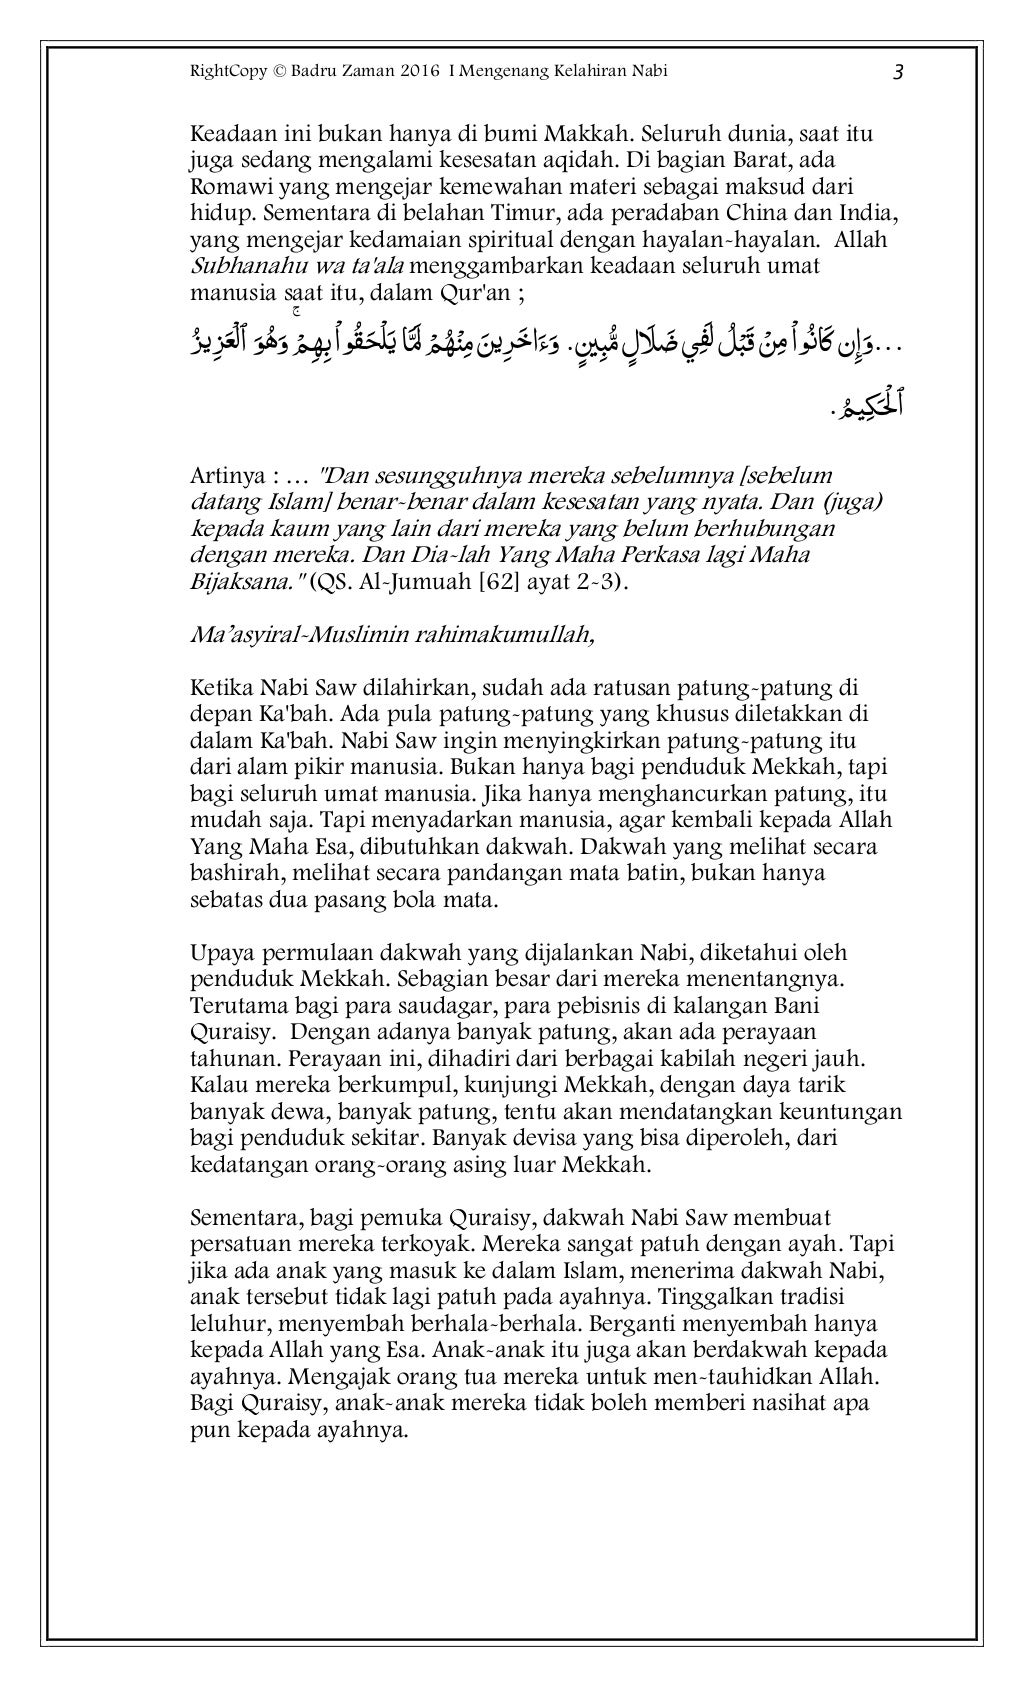 RightCopy © Badru Zaman 2016 I Mengenang Kelahiran Nabi 3
Keadaan ini bukan hanya di bumi Makkah. Seluruh dunia, saat itu
juga sedang mengalami kesesatan aqidah. Di bagian Barat, ada
Romawi yang mengejar kemewahan materi sebagai maksud dari
hidup. Sementara di belahan Timur, ada peradaban China dan India,
yang mengejar kedamaian spiritual dengan hayalan-hayalan. Allah
Subhanahu wa ta'ala menggambarkan keadaan seluruh umat
manusia saat itu, dalam Qur'an ;
...وَإِن كَانُوا۟ مِنْ قَبْلُ لَفِي ضَلَالٍ مُّبِينٍ. وَءَاخَرِينَ مِنْهُمْ لَمَّا يَلْحَقُوا۟ بِهِمْ ۚ وَهُوَ ٱلْعَزِيزُ
ٱلْحَكِيمُ.
Artinya : ... "Dan sesungguhnya mereka sebelumnya [sebelum
datang Islam] benar-benar dalam kesesatan yang nyata. Dan (juga)
kepada kaum yang lain dari mereka yang belum berhubungan
dengan mereka. Dan Dia-lah Yang Maha Perkasa lagi Maha
Bijaksana." (QS. Al-Jumuah [62] ayat 2-3).
Ma’asyiral-Muslimin rahimakumullah,
Ketika Nabi Saw dilahirkan, sudah ada ratusan patung-patung di
depan Ka'bah. Ada pula patung-patung yang khusus diletakkan di
dalam Ka'bah. Nabi Saw ingin menyingkirkan patung-patung itu
dari alam pikir manusia. Bukan hanya bagi penduduk Mekkah, tapi
bagi seluruh umat manusia. Jika hanya menghancurkan patung, itu
mudah saja. Tapi menyadarkan manusia, agar kembali kepada Allah
Yang Maha Esa, dibutuhkan dakwah. Dakwah yang melihat secara
bashirah, melihat secara pandangan mata batin, bukan hanya
sebatas dua pasang bola mata.
Upaya permulaan dakwah yang dijalankan Nabi, diketahui oleh
penduduk Mekkah. Sebagian besar dari mereka menentangnya.
Terutama bagi para saudagar, para pebisnis di kalangan Bani
Quraisy. Dengan adanya banyak patung, akan ada perayaan
tahunan. Perayaan ini, dihadiri dari berbagai kabilah negeri jauh.
Kalau mereka berkumpul, kunjungi Mekkah, dengan daya tarik
banyak dewa, banyak patung, tentu akan mendatangkan keuntungan
bagi penduduk sekitar. Banyak devisa yang bisa diperoleh, dari
kedatangan orang-orang asing luar Mekkah.
Sementara, bagi pemuka Quraisy, dakwah Nabi Saw membuat
persatuan mereka terkoyak. Mereka sangat patuh dengan ayah. Tapi
jika ada anak yang masuk ke dalam Islam, menerima dakwah Nabi,
anak tersebut tidak lagi patuh pada ayahnya. Tinggalkan tradisi
leluhur, menyembah berhala-berhala. Berganti menyembah hanya
kepada Allah yang Esa. Anak-anak itu juga akan berdakwah kepada
ayahnya. Mengajak orang tua mereka untuk men-tauhidkan Allah.
Bagi Quraisy, anak-anak mereka tidak boleh memberi nasihat apa
pun kepada ayahnya.